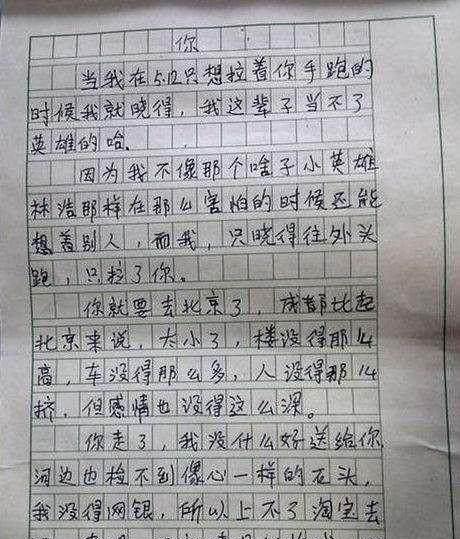 你
当我在5.12只想拉着你手跑的
时候我就晓得，我这辈子当不了
英雄的哈。
因为我不像那个啥子小英雄
林浩那样在那么害怕的时候还能
想着别人，而我，只晓得往外头
跑，只拉了你。
你就要去北京了，成都比起
北京来说，太小了，楼没得那么
高，车没得那么多，人没得那么
挤，但感情也没得这么深。
你走了，我没什么好送给你
河边也检不到像心一样的石头，
我没得网银，所以上不了淘宝去